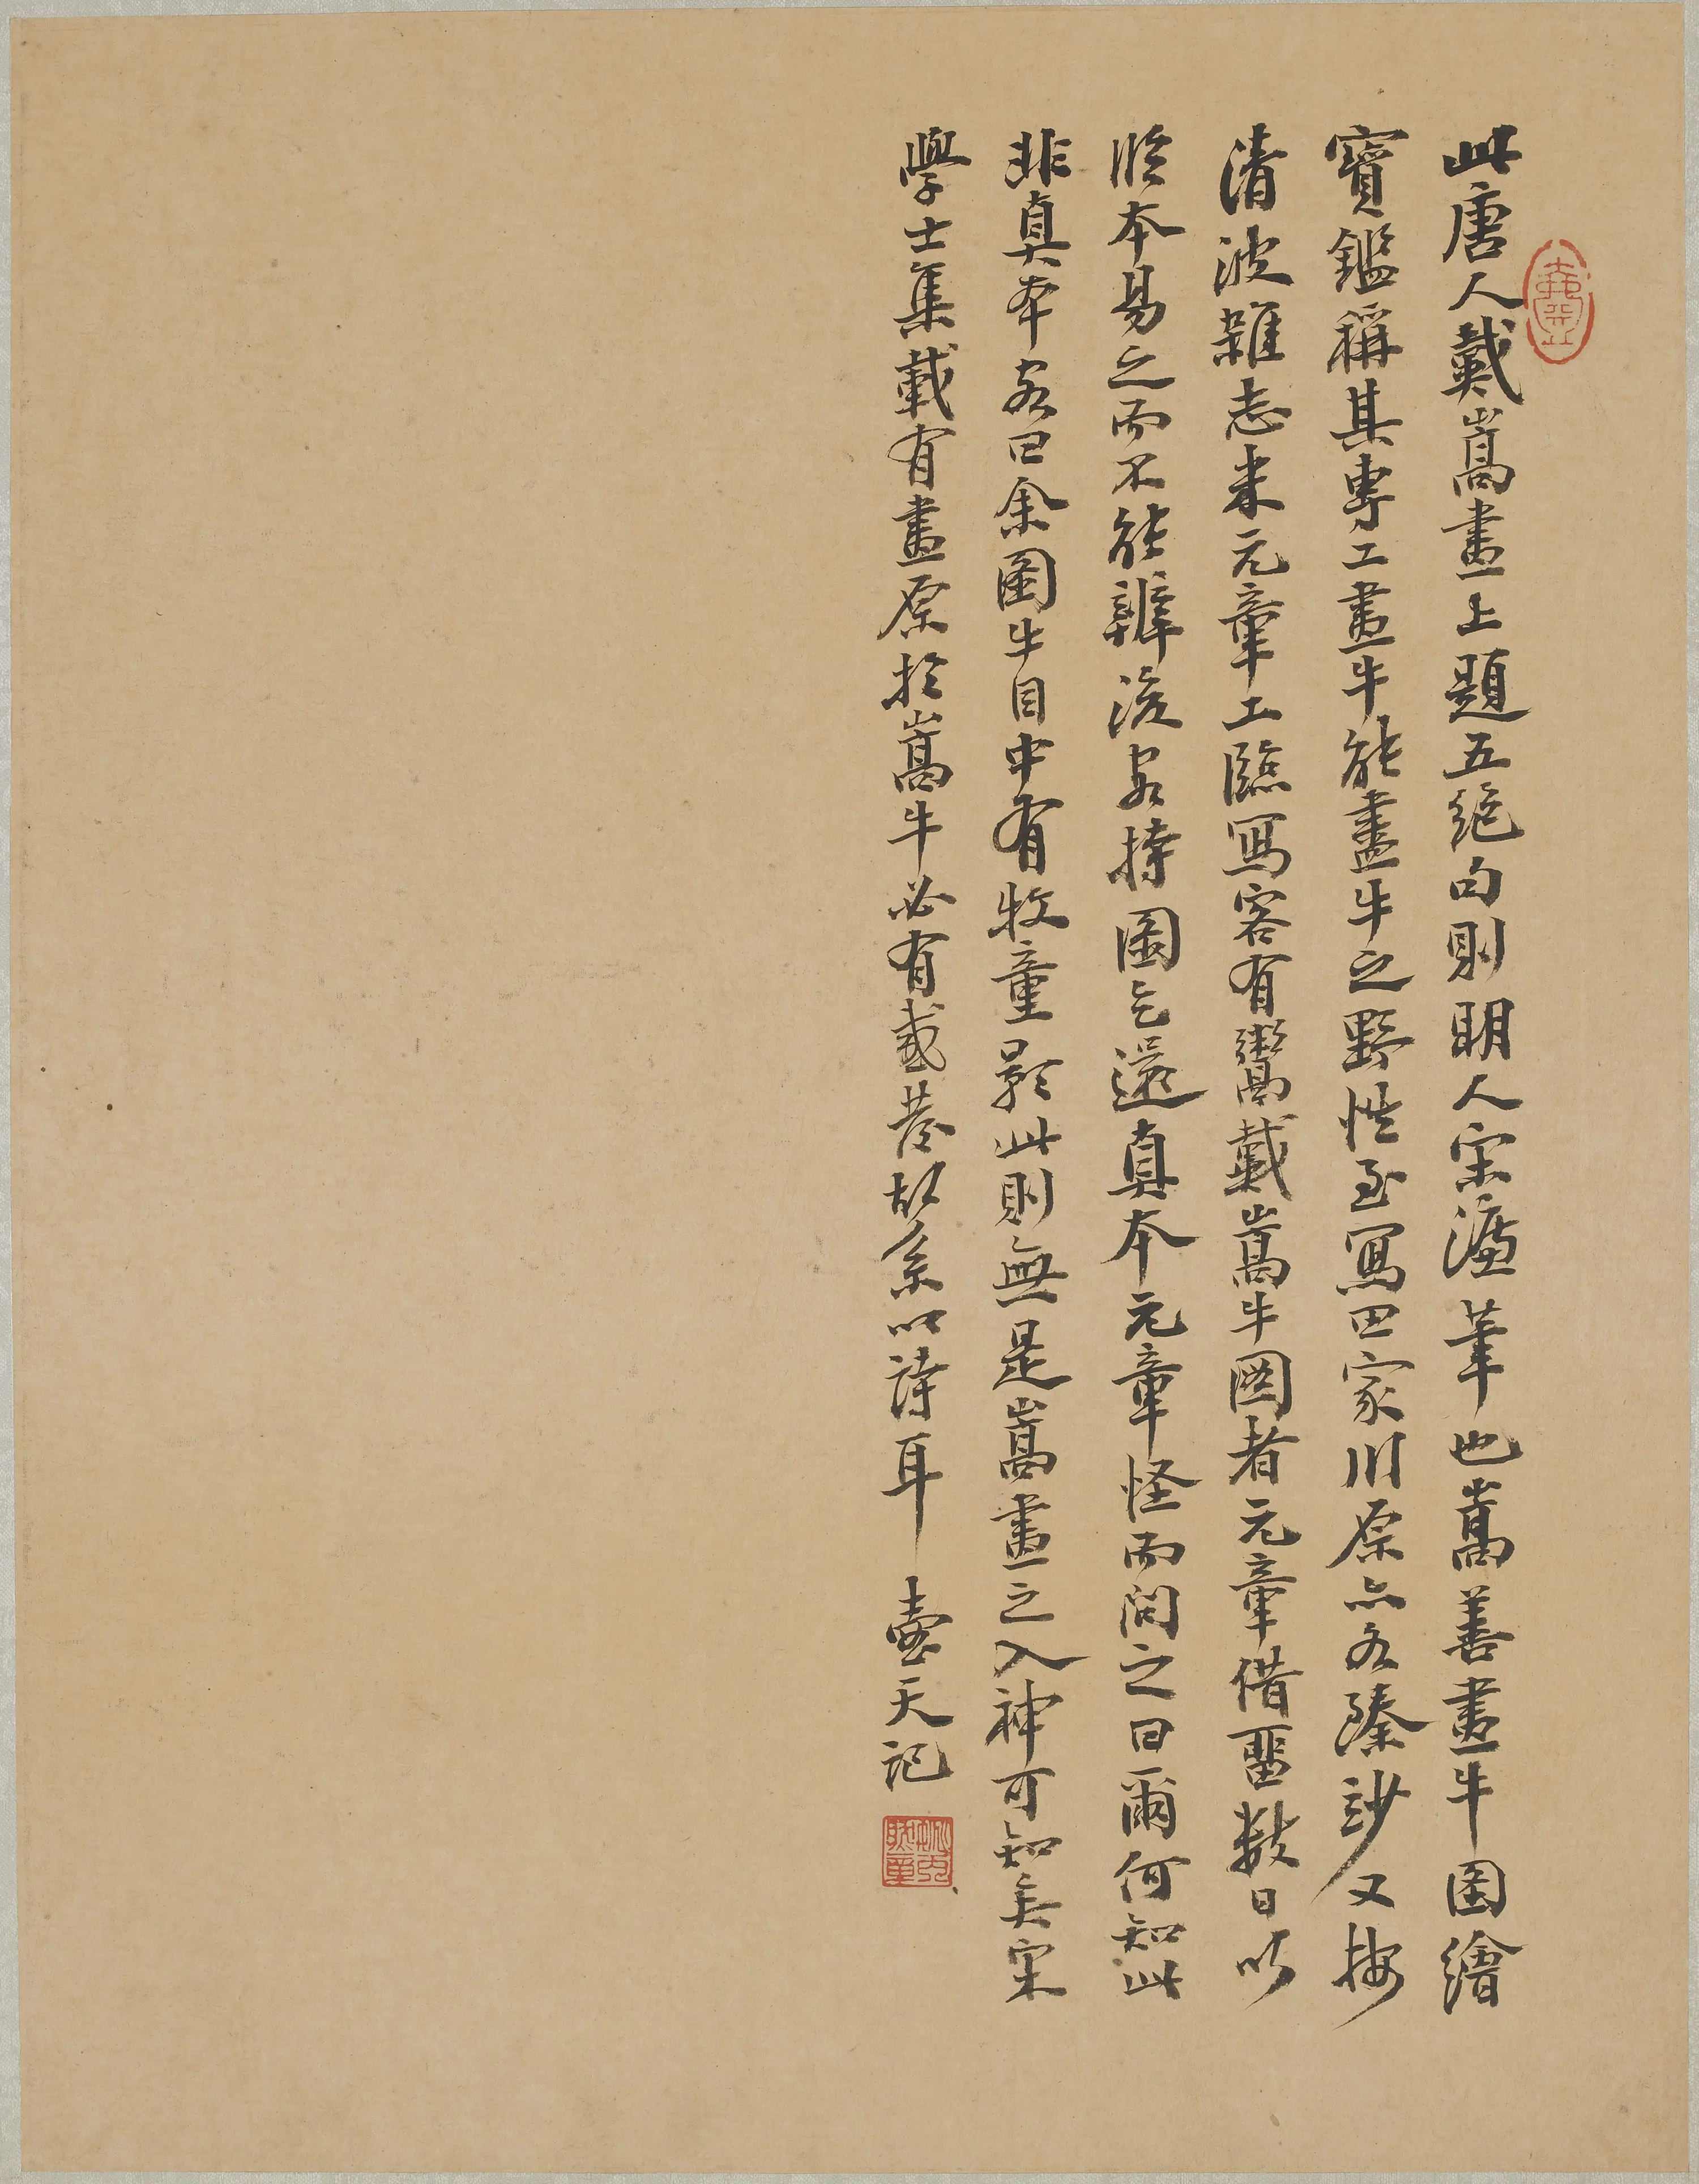 此唐人戴嵩畫上題五絕句則明人宋濂筆也嵩善畫牛圖繪
寶鑑稱其專工畫牛能盡牛之野性至寫田家川原亦各臻妙又按
清波雜志米元章工臨寫客有鬻戴嵩牛圖者元章借留數日以
臨本易之而不能辨後客持圖乞還真本元章怪而問之曰爾何知此
非真本客曰余圖牛目中有牧童影此則無是嵩畫之入神可知矣宋
學士集載有畫原於嵩牛必有載若故系以詩耳 壺天記